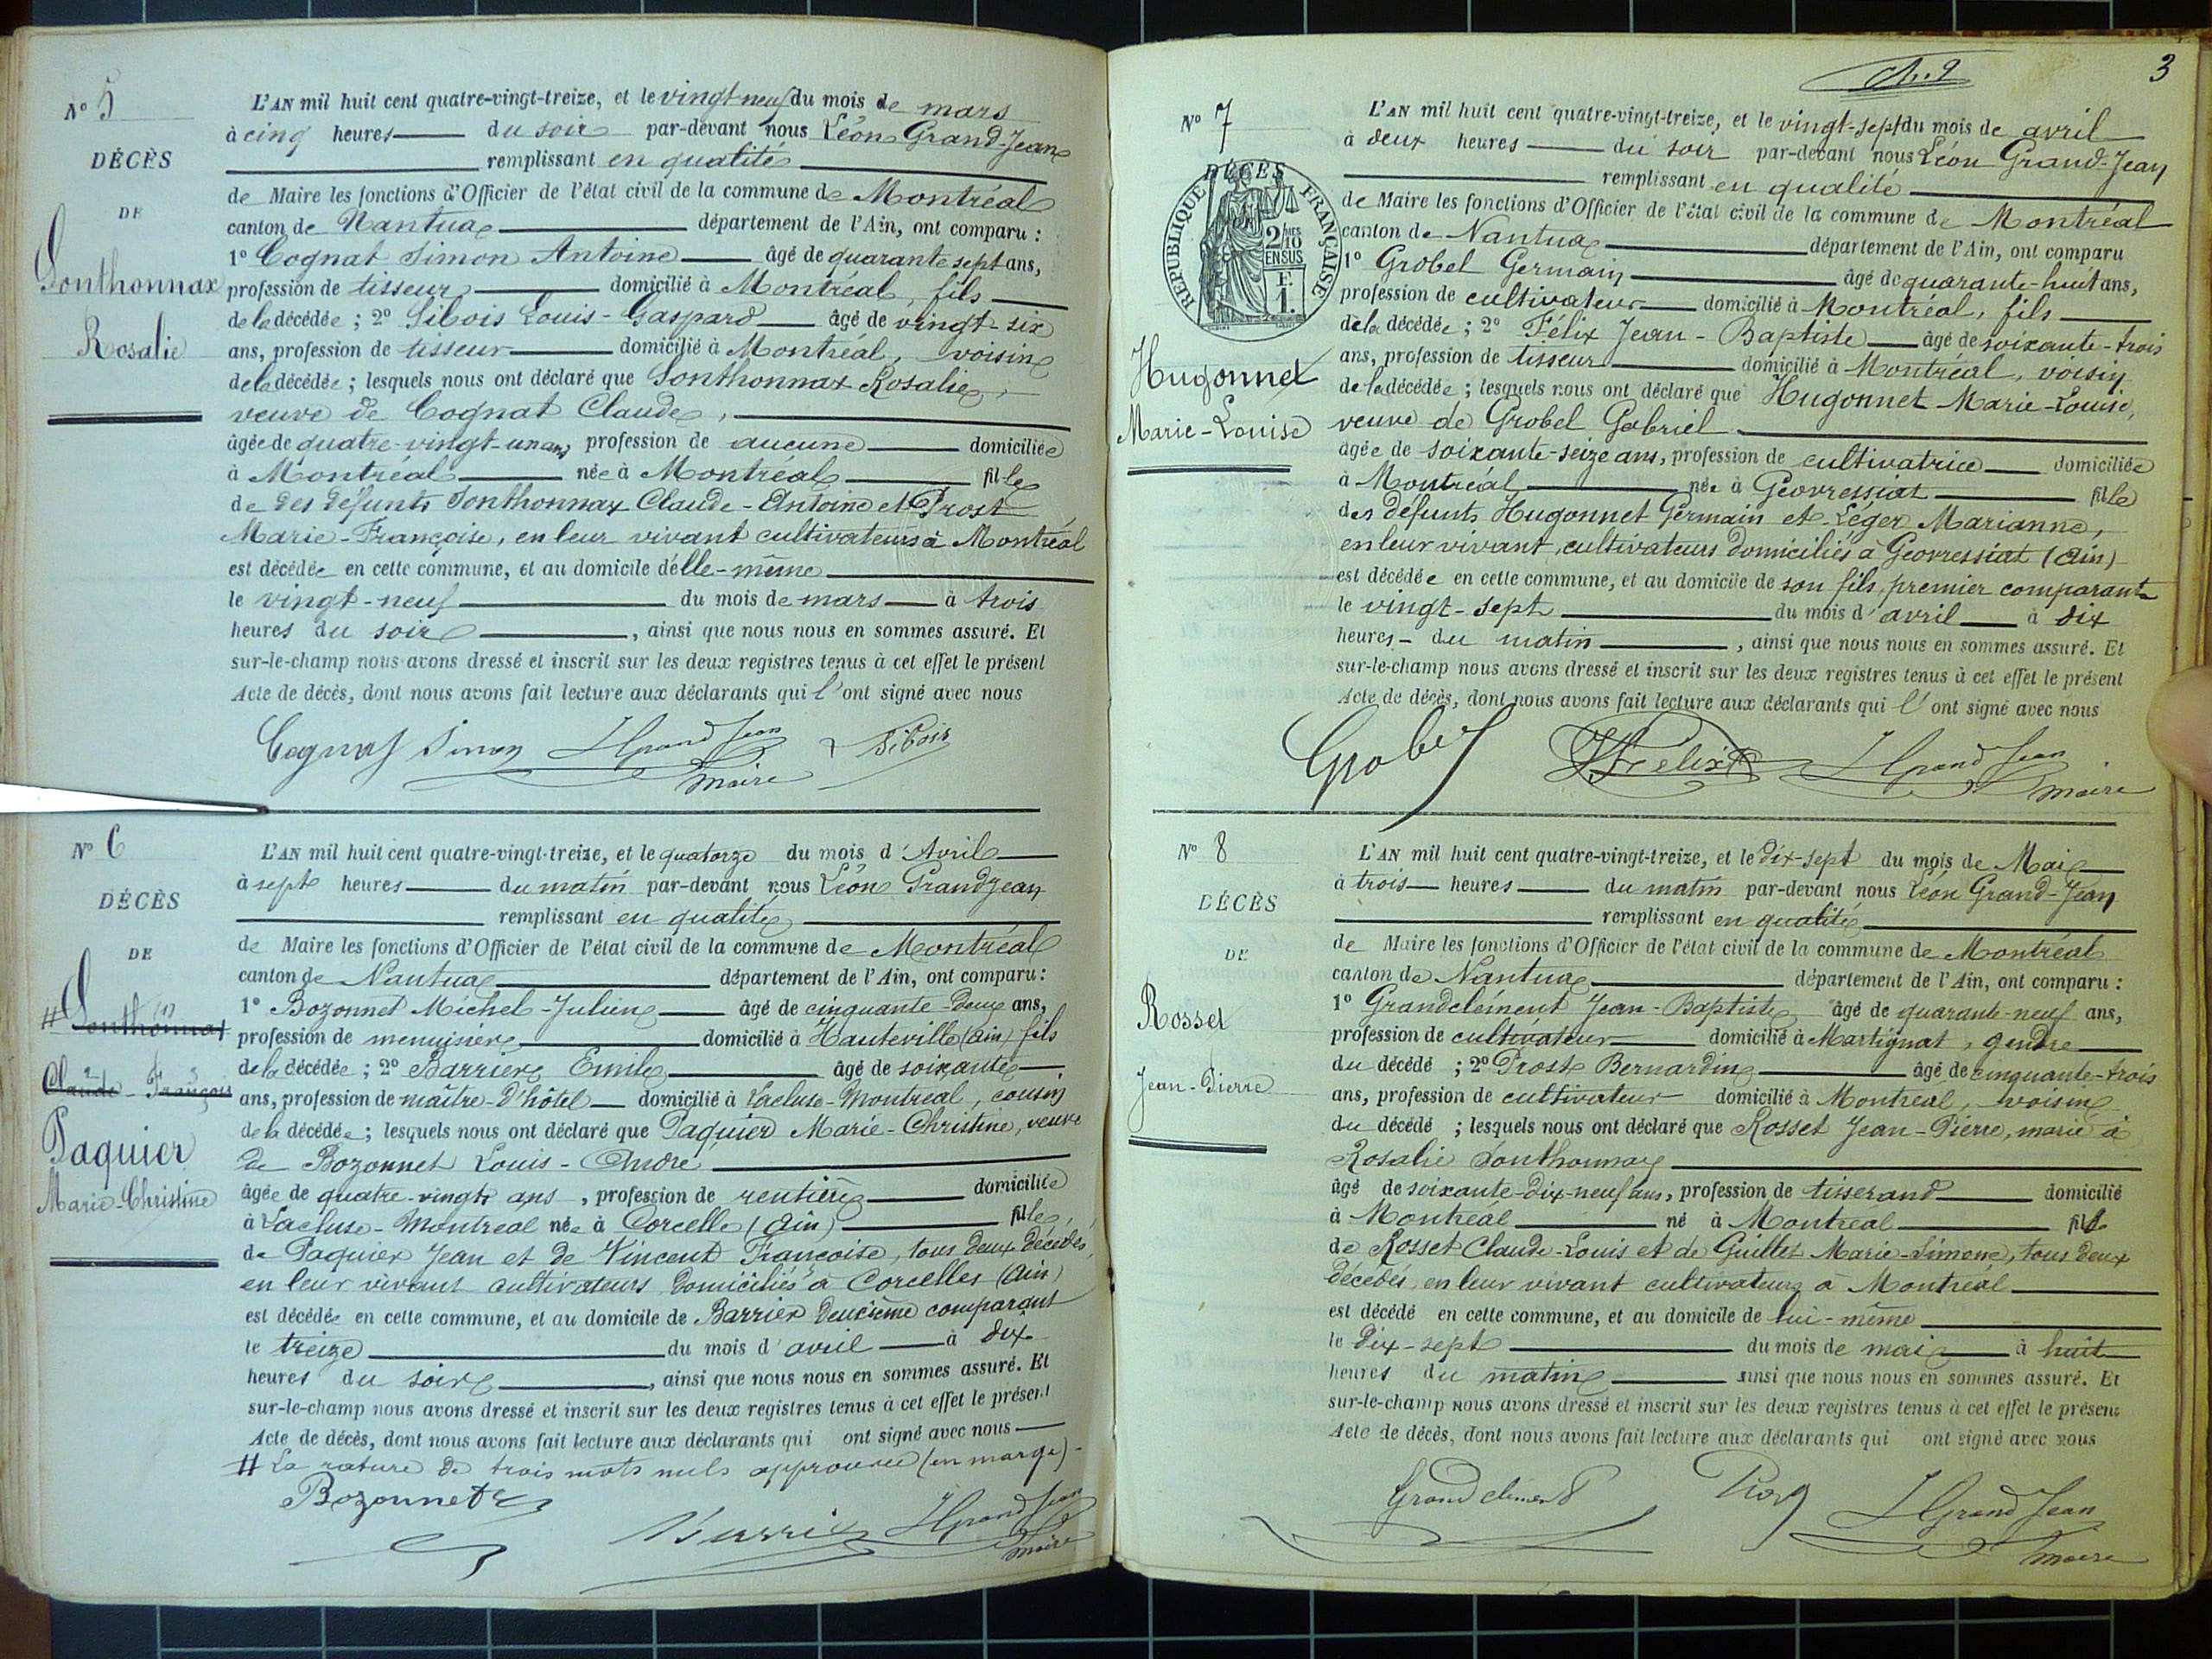 N° 5
DÉCÈS
DE
Sonthonnax
Rosalie
L'AN mil huit cent quatre-vingt-treize, et le vingt neuf du mois de mars
à cinq heures du soir par-devant nous Léon Grand-Jean
remplissant en qualité
de Maire les fonctions d'Officier de l'état civil de la commune de Montréal
canton de Nantua département de l'Ain, ont comparu :
1° Cognat Simon Antoine âgé de quarante sept ans,
profession de tisseur domicilié à Montréal, fils
de la décédée ; 2° Sibois Louis-Gaspard âgé de vingt-six
ans, profession de tisseur domicilié à Montréal, voisin
de la décédée ; lesquels nous ont déclaré que Sonthonnax Rosalie,
veuve de Cognat Claude,
âgée de quatre-vingt-un ans, profession de aucune domiciliée
à Montréal née à Montréal fille
de des défunts Sonthonnax Claude-Antoine et Prost
Marie-Françoise, en leur vivant cultivateurs à Montréal
est décédée en cette commune, et au domicile d'elle-même
le vingt-neuf du mois de mars à trois
heures du soir, ainsi que nous nous en sommes assuré. Et
sur-le-champ nous avons dressé et inscrit sur les deux registres tenus à cet effet le présent
Acte de décès, dont nous avons fait lecture aux déclarants qui l'ont signé avec nous
Cognat Simon LGrand Jean Sibois
maire
N° 6
DÉCÈS
DE
# Sonthonnax
Claude-François
Paquier
Marie-Christine
L'AN mil huit cent quatre-vingt-treize, et le quatorze du mois d'Avril
à sept heures du matin par-devant nous Léon Grandjean
remplissant en qualité
de Maire les fonctions d'Officier de l'état civil de la commune de Montréal
canton de Nantua département de l'Ain, ont comparu :
1° Bozonnet Michel-Julien âgé de cinquante-deux ans,
profession de menuisier domicilié à Hauteville (Ain) fils
de la décédée ; 2° Barrier Emile âgé de soixante
ans, profession de maître-d'hôtel domicilié à Lacluse-Montréal, cousin
de la décédée ; lesquels nous ont déclaré que Paquier Marie-Christine, veuve
de Bozonnet Louis-André
âgée de quatre-vingts ans, profession de rentière domiciliée
à Lacluse-Montréal née à Corcelle (Ain) fille,
de Paquier Jean et de Vincent Françoise, tous deux décédés,
en leur vivant cultivateurs domiciliés à Corcelles (Ain)
est décédée en cette commune, et au domicile de Barrier deuxième comparant
le treize du mois d'avril à dix
heures du soir, ainsi que nous nous en sommes assuré. Et
sur-le-champ nous avons dressé et inscrit sur les deux registres tenus à cet effet le présent
Acte de décès, dont nous avons fait lecture aux déclarants qui ont signé avec nous
# La rature de trois mots nuls approuvée (en marge)
Bozonnet Barrier LGrand Jean
maire
3
N° 7
DÉCÈS
REPUBLIQUE FRANÇAISE
2/10 MES
EN SUS
F.
1.
Hugonnet
Marie-Louise
L'AN mil huit cent quatre-vingt-treize, et le vingt-sept du mois de avril
à deux heures du soir par-devant nous Léon Grand-Jean
remplissant en qualité
de Maire les fonctions d'Officier de l'état civil de la commune de Montréal
canton de Nantua département de l'Ain, ont comparu
1° Grobel Germain âgé de quarante-huit ans,
profession de cultivateur domicilié à Montréal, fils
de la décédée ; 2° Félix Jean-Baptiste âgé de soixante-trois
ans, profession de tisseur domicilié à Montréal, voisin
de la décédée ; lesquels nous ont déclaré que Hugonnet Marie-Louise,
veuve de Grobel Gabriel
âgée de soixante-seize ans, profession de cultivatrice domiciliée
à Montréal née à Géovressiat fille
des défunts Hugonnet Germain et Léger Marianne,
en leur vivant, cultivateurs domiciliés à Géovressiat (Ain)
est décédée en cette commune, et au domicile de son fils, premier comparant
le vingt-sept du mois d'avril à dix
heures du matin, ainsi que nous nous en sommes assuré. Et
sur-le-champ nous avons dressé et inscrit sur les deux registres tenus à cet effet le présent
Acte de décès, dont nous avons fait lecture aux déclarants qui l'ont signé avec nous
Grobel Félix LGrand Jean
maire
N° 8
DÉCÈS
DE
Rosset
Jean-Pierre
L'AN mil huit cent quatre-vingt-treize, et le dix-sept du mois de Mai
à trois heures du matin par-devant nous Léon Grand-Jean
remplissant en qualité
de Maire les fonctions d'Officier de l'état civil de la commune de Montréal
canton de Nantua département de l'Ain, ont comparu :
1° Grandclément Jean-Baptiste âgé de quarante-neuf ans,
profession de cultivateur domicilié à Martignat, gendre
du décédé ; 2° Prost Bernardin âgé de cinquante-trois
ans, profession de cultivateur domicilié à Montréal, voisin
du décédé ; lesquels nous ont déclaré que Rosset Jean-Pierre, marié à
Rosalie Sonthonnax
âgé de soixante-dix-neuf ans, profession de tisserand domicilié
à Montréal né à Montréal fils
de Rosset Claude-Louis et de Guillet Marie-Simone, tous deux
décédés, en leur vivant cultivateurs à Montréal
est décédé en cette commune, et au domicile de lui-même
le dix-sept du mois de mai à huit
heures du matin ainsi que nous nous en sommes assuré. Et
sur-le-champ nous avons dressé et inscrit sur les deux registres tenus à cet effet le présent
Acte de décès, dont nous avons fait lecture aux déclarants qui ont signé avec nous
Grandclément Prost LGrand Jean
maire